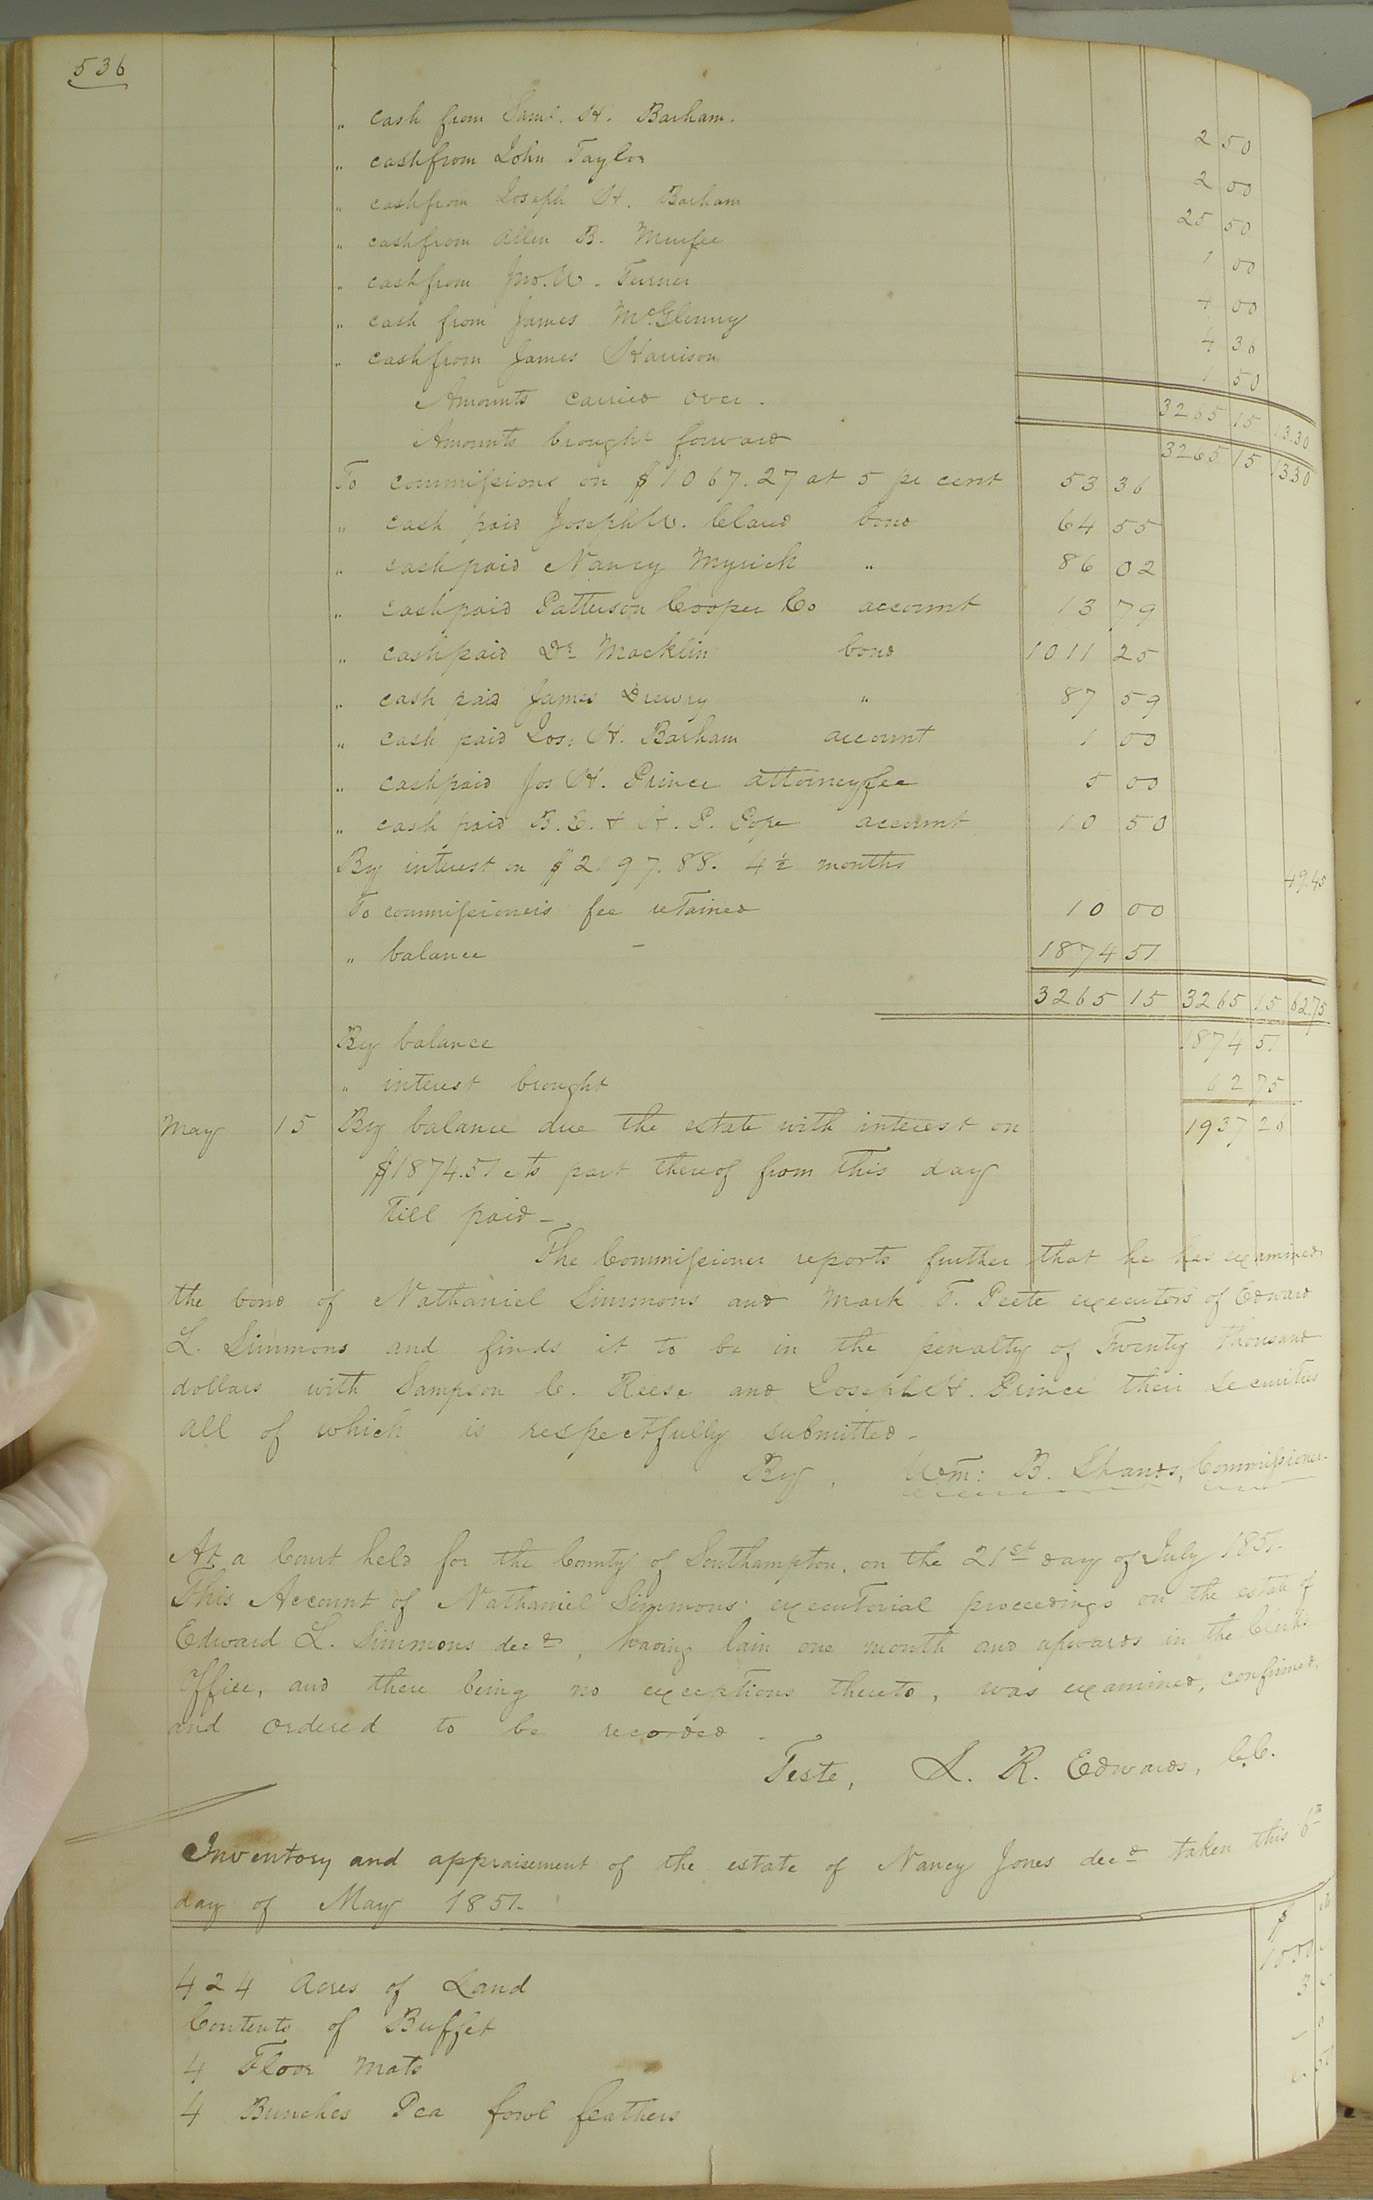 536
" cash from Saml. H. Barham. 2 50
" cash from John Taylor 2 00
" cash from Joseph H. Barham 25 50
" cash from Allen B. Murfee 1 00
" cash from Jno. W. Turner 4 00
" cash from James McGlenny 4 30
" cash from James Harrison 1 50
Amounts carried over. 3265 15 13.30
Amounts brought forward 3265 15 1330
To commissions on $1067.27 at 5 pr cent 53 36
" cash paid Joseph W. Claud bond 64 55
" cash paid Nancy Myrick " 86 02
" cash paid Patterson Cooper Co account 13 79
" cash paid Dr. Macklin bond 1011 25
" cash paid James Drewry " 87 59
" cash paid Jos. H. Barham account 1 00
" cash paid Jos H. Prince attorney fee 5 00
" cash paid B. E. & H. P. Pope account 10 50
By interest on $2197.88. 4½ months 49.45
To commissioners fee retained 10 00
" balance - 1874 51
3265 15 3265 15 62.75
By balance 1874 51
" interest brought 62 75
May 15 By balance due the estate with interest on 1937 26
$1874.51 cts part thereof from this day
till paid -
The Commissioner reports further that he has examined
the bond of Nathaniel Simmons and Mark T. Peete executors of Edward
L. Simmons and finds it to be in the penalty of Twenty thousand
dollars with Sampson C. Reese and Joseph H. Prince their securities
all of which is respectfully submitted -
By, Wm: B. Shands, Commissioner.
At a Court held for the County of Southampton, on the 21st day of July 1851.
This Account of Nathaniel Simmons' executorial proceedings on the estate of
Edward L. Simmons decd, having lain one month and upwards in the Clerks
Office, and there being no exceptions thereto, was examined, confirmed,
and ordered to be recorded.
Teste, L. R. Edwards, C.C.
Inventory and appraisement of the estate of Nancy Jones decd taken this 6th
day of May 1851. $
424 Acres of Land
Contents of Buffet 3
4 Floor Mats
4 Bunches Pea fowl feathers